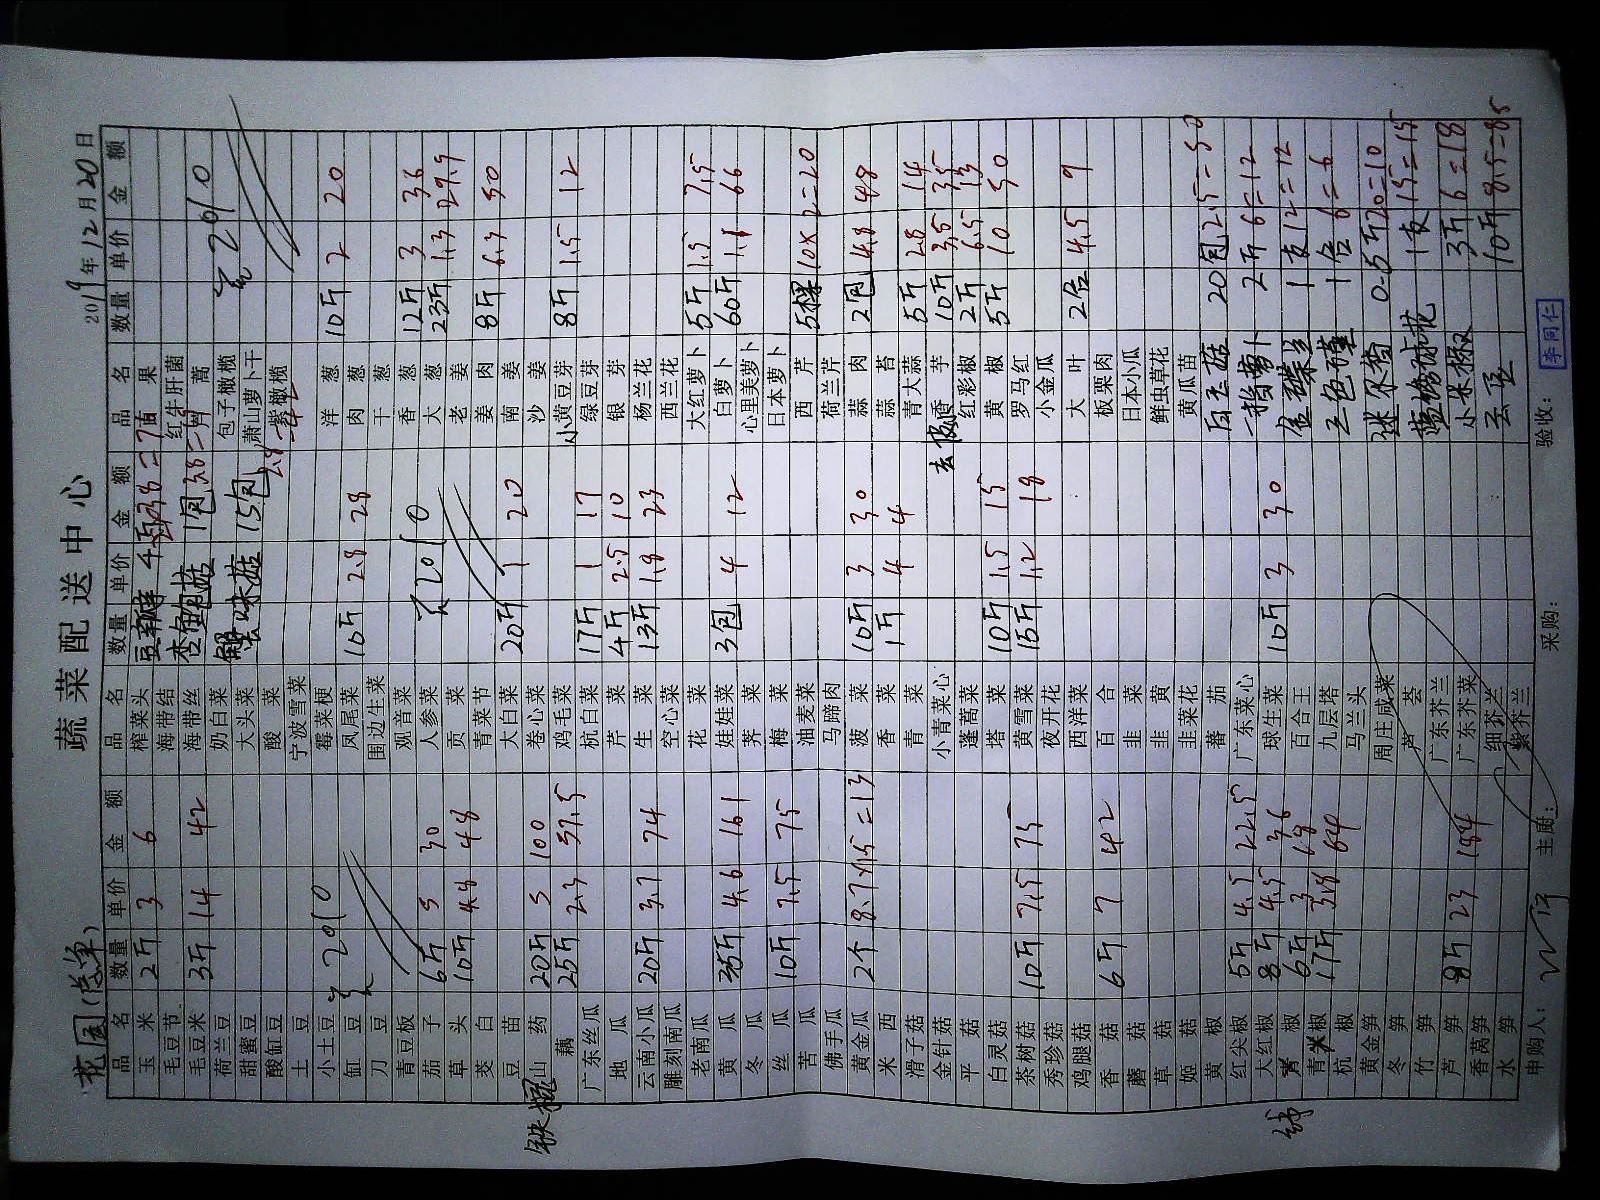 蔬菜配送中心
花园(总单)
2019年12月20日
品名 数量 单价 金额 品名 数量 单价 金额 品名 数量 单价 金额
玉米 2斤 3 6
毛豆节
毛豆米 3斤 14 42
荷兰豆
甜蜜豆
酸缸豆
土豆
小土豆
缸豆
刀豆
青豆板
茄子 6斤 5 30
草头 10斤 4.8 48
茭白
豆苗
铁棍山药 20斤 5 100
藕 25斤 2.3 57.5
广东丝瓜
地瓜
云南小瓜 20斤 3.7 74
雕刻南瓜
老南瓜
黄瓜 35斤 4.6 161
冬瓜
丝瓜 10斤 7.5 75
苦瓜
佛手瓜
黄金瓜 2个 8.7×1.5=13
米西
滑子菇
金针菇
平菇
白灵菇
茶树菇 10斤 7.5 75
秀珍菇
鸡腿菇
香菇 6斤 7 42
蘑菇
草菇
姬菇
黄椒
红尖椒 5斤 4.5 22.5
大红椒 8斤 4.5 36
青椒 6斤 3 18
青椒 17斤 3.8 64
杭椒
黄金笋
冬笋
竹笋
芦笋 8斤 23 184
香莴笋
水笋
榨菜头 豆瓣
海带结 杏鲍菇 1包
海带丝
奶白菜 蟹味菇 15包
大头菜
酸菜
宁波雪菜
霉菜梗
凤尾菜 10斤 2.8 28
围边生菜
观音菜
人参菜
贡菜
青菜节
大白菜 20斤 1 20
卷心菜
鸡毛菜
杭白菜 17斤 1 17
芹菜 4斤 2.5 10
生菜 13斤 1.8 23
空心菜
花菜
娃娃菜 3包 4 12
荠菜
梅菜
油麦菜
马蹄肉
菠菜 10斤 3 30
香菜 1斤 4 4
青菜
小青菜心
蓬蒿菜
塔菜 10斤 1.5 15
黄雪菜 15斤 1.2 18
夜开花
西洋菜
百合
韭菜
韭黄
韭菜花
蕃茄
广东菜心
球生菜 10斤 3 30
百合王
九层塔
马兰头
周庄咸菜
芦荟
广东芥兰
广东芥菜
细芥兰
紫芥兰
红牛肝菌
包子橄榄
萧山萝卜干
紫橄榄
洋葱 10斤 2 20
肉葱
干葱
香葱 12斤 3 36
大葱 23斤 1.3 29.9
老姜
姜肉 8斤 6.3 50
南姜
沙姜
小黄豆芽 8斤 1.5 12
绿豆芽
银芽
杨兰花
西兰花
大红萝卜 5斤 1.5 7.5
白萝卜 60斤 1.1 66
心里美萝卜
日本萝卜
西芹 5棵 10×2=20
荷兰芹
蒜肉 2包 4.8 48
蒜苔
青大蒜 5斤 2.8 14
去皮香芋 10斤 3.5 35
红彩椒 2斤 6.5 13
黄椒 5斤 10 50
罗马红
小金瓜
大叶 2合 4.5 9
板栗肉
日本小瓜
鲜虫草花
黄瓜苗
白玉菇 20包 2.5=50
一指萝卜 2斤 6=12
金瓒兰 1支 12=12
三色堇 1合 6=6
迷尔茴 0.5斤 20=10
蓝绣球花 1支 15=15
小米椒 3斤 6=18
10斤 8.5=85
申购人: 主厨: 采购: 验收:
李同仁